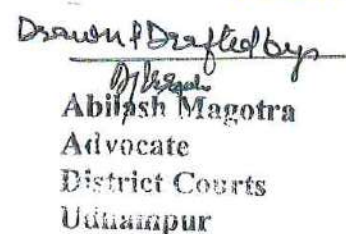 Drawn & Drafted by
Abilash Magotra
Advocate
District Courts
Udhampur